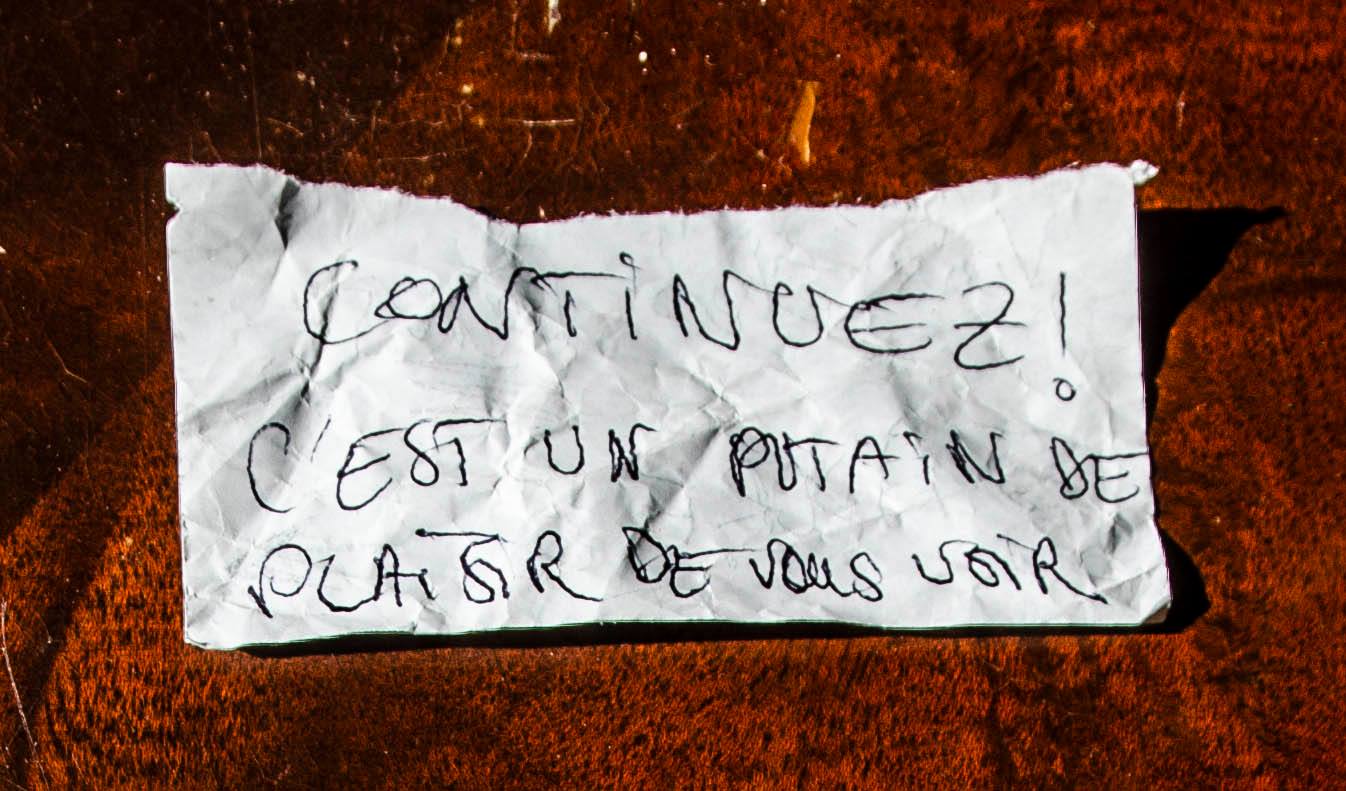 CONTINUEZ!
C'EST UN PUTAIN DE
PLAISIR DE VOUS VOIR